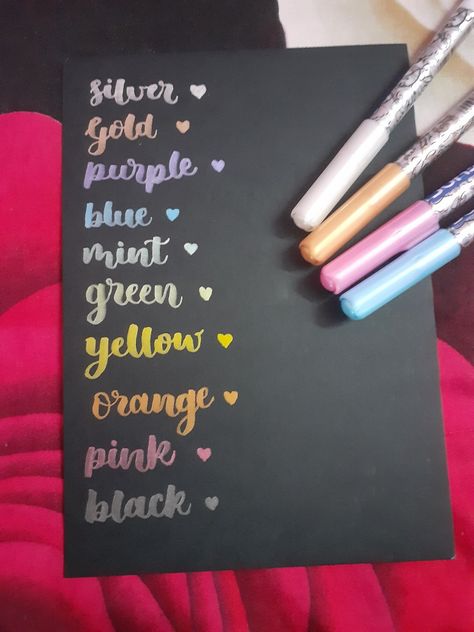 silver
Gold
purple
blue
mint
green
yellow
orange
pink
black